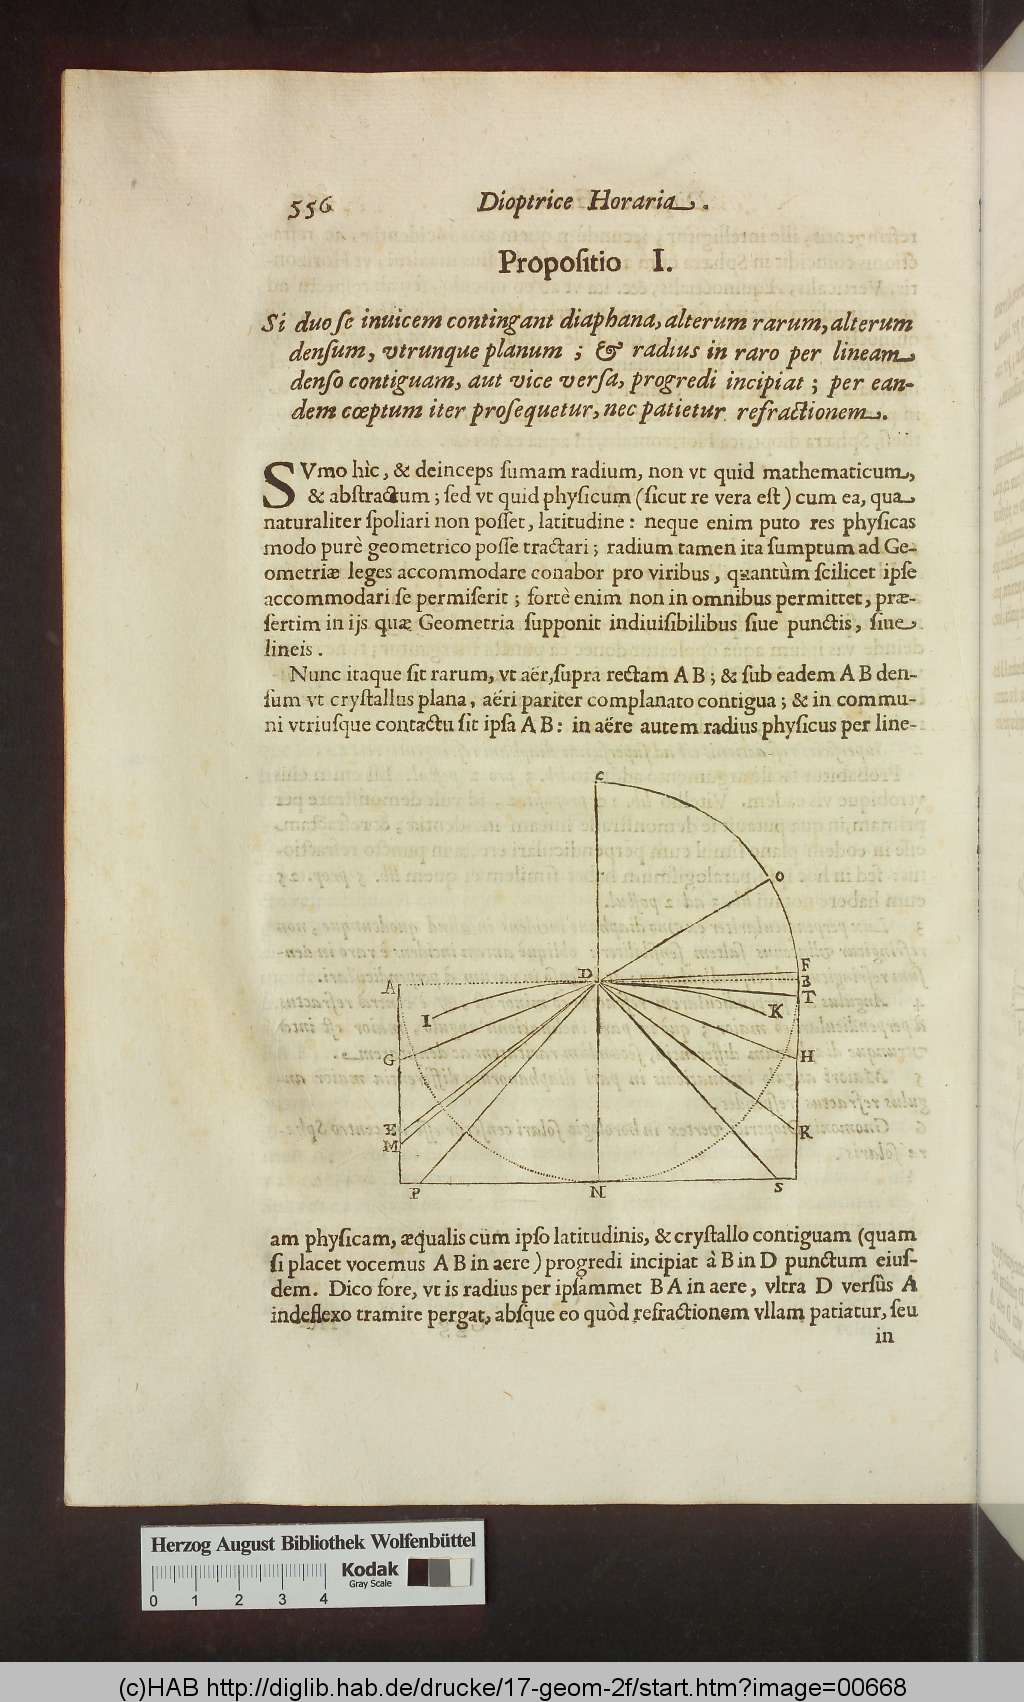 556 Dioptrice Horaria.
Propoſitio I.
Si duo ſe inuicem contingant diaphana, alterum rarum, alterum
denſum, vtrunque planum ; & radius in raro per lineam
denſo contiguam, aut vice verſa, progredi incipiat ; per ean-
dem cœptum iter proſequetur, nec patietur refractionem.
SVmo hìc, & deinceps ſumam radium, non vt quid mathematicum,
& abſtractum ; ſed vt quid phyſicum (ſicut re vera eſt) cum ea, qua
naturaliter ſpoliari non poſſet, latitudine : neque enim puto res phyſicas
modo purè geometrico poſſe tractari ; radium tamen ita ſumptum ad Ge-
ometriæ leges accommodare conabor pro viribus, quantùm ſcilicet ipſe
accommodari ſe permiſerit ; fortè enim non in omnibus permittet, præ-
ſertim in ijs quæ Geometria ſupponit indiuiſibilibus ſiue punctis, ſiue
lineis.
Nunc itaque ſit rarum, vt aër, ſupra rectam A B ; & ſub eadem A B den-
ſum vt cryſtallus plana, aëri pariter complanato contigua ; & in commu-
ni vtriuſque contactu ſit ipſa A B : in aëre autem radius phyſicus per line-
C
O
F
D
A
B
T
I
K
G
H
E
R
M
P
N
S
am phyſicam, æqualis cùm ipſo latitudinis, & cryſtallo contiguam (quam
ſi placet vocemus A B in aere) progredi incipiat à B in D punctum eiuſ-
dem. Dico fore, vt is radius per ipſammet B A in aere, vltra D versùs A
indeflexo tramite pergat, abſque eo quòd refractionem vllam patiatur, ſeu
in
Herzog August Bibliothek Wolfenbüttel
Kodak
Gray Scale
0 1 2 3 4
(c)HAB http://diglib.hab.de/drucke/17-geom-2f/start.htm?image=00668